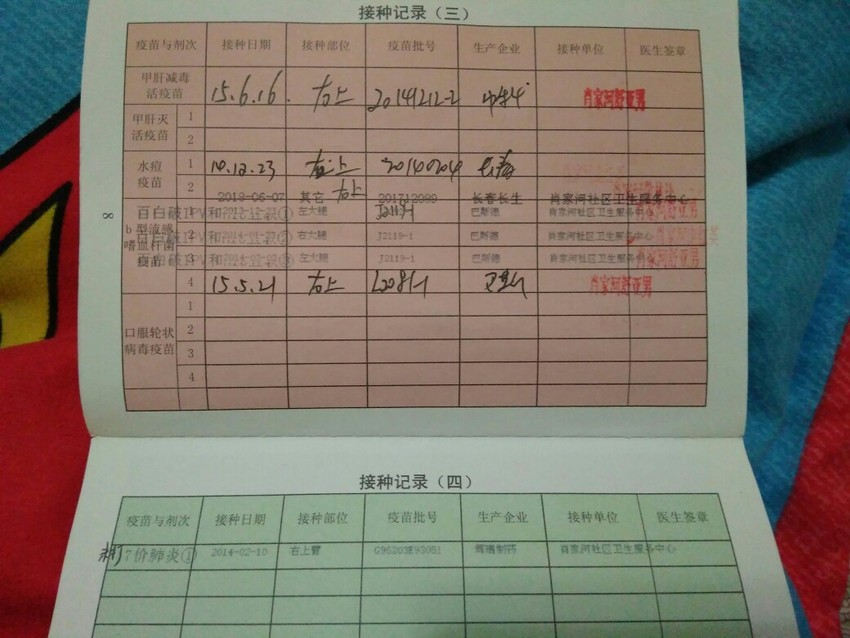 接种记录（三）
疫苗与剂次 接种日期 接种部位 疫苗批号 生产企业 接种单位 医生签章
甲肝减毒活疫苗 15.6.16. 右上 20141212-2 肖家河舒亚男
甲肝灭活疫苗 1
2
水痘疫苗 1 14.12.23 右上 20140204 长春
2 2018-06-07 其它 右上 长春长生 肖家河社区卫生服务中心
百白破IPV和 ① 左大腿 J2119-1 巴斯德 肖家河社区卫生服务中心
b型流感嗜血杆菌疫苗
2 右大腿 J2119-1 巴斯德 肖家河社区卫生服务中心
百白破IPV和 3 左大腿 J2119-1 巴斯德 肖家河社区卫生服务中心 肖家河舒亚男
4 15.5.21 右上 L2081-1 肖家河舒亚男
口服轮状病毒疫苗 1
2
3
4
8
接种记录（四）
疫苗与剂次 接种日期 接种部位 疫苗批号 生产企业 接种单位 医生签章
7价肺炎① 2014-02-10 右上臂 辉瑞制药 肖家河社区卫生服务中心